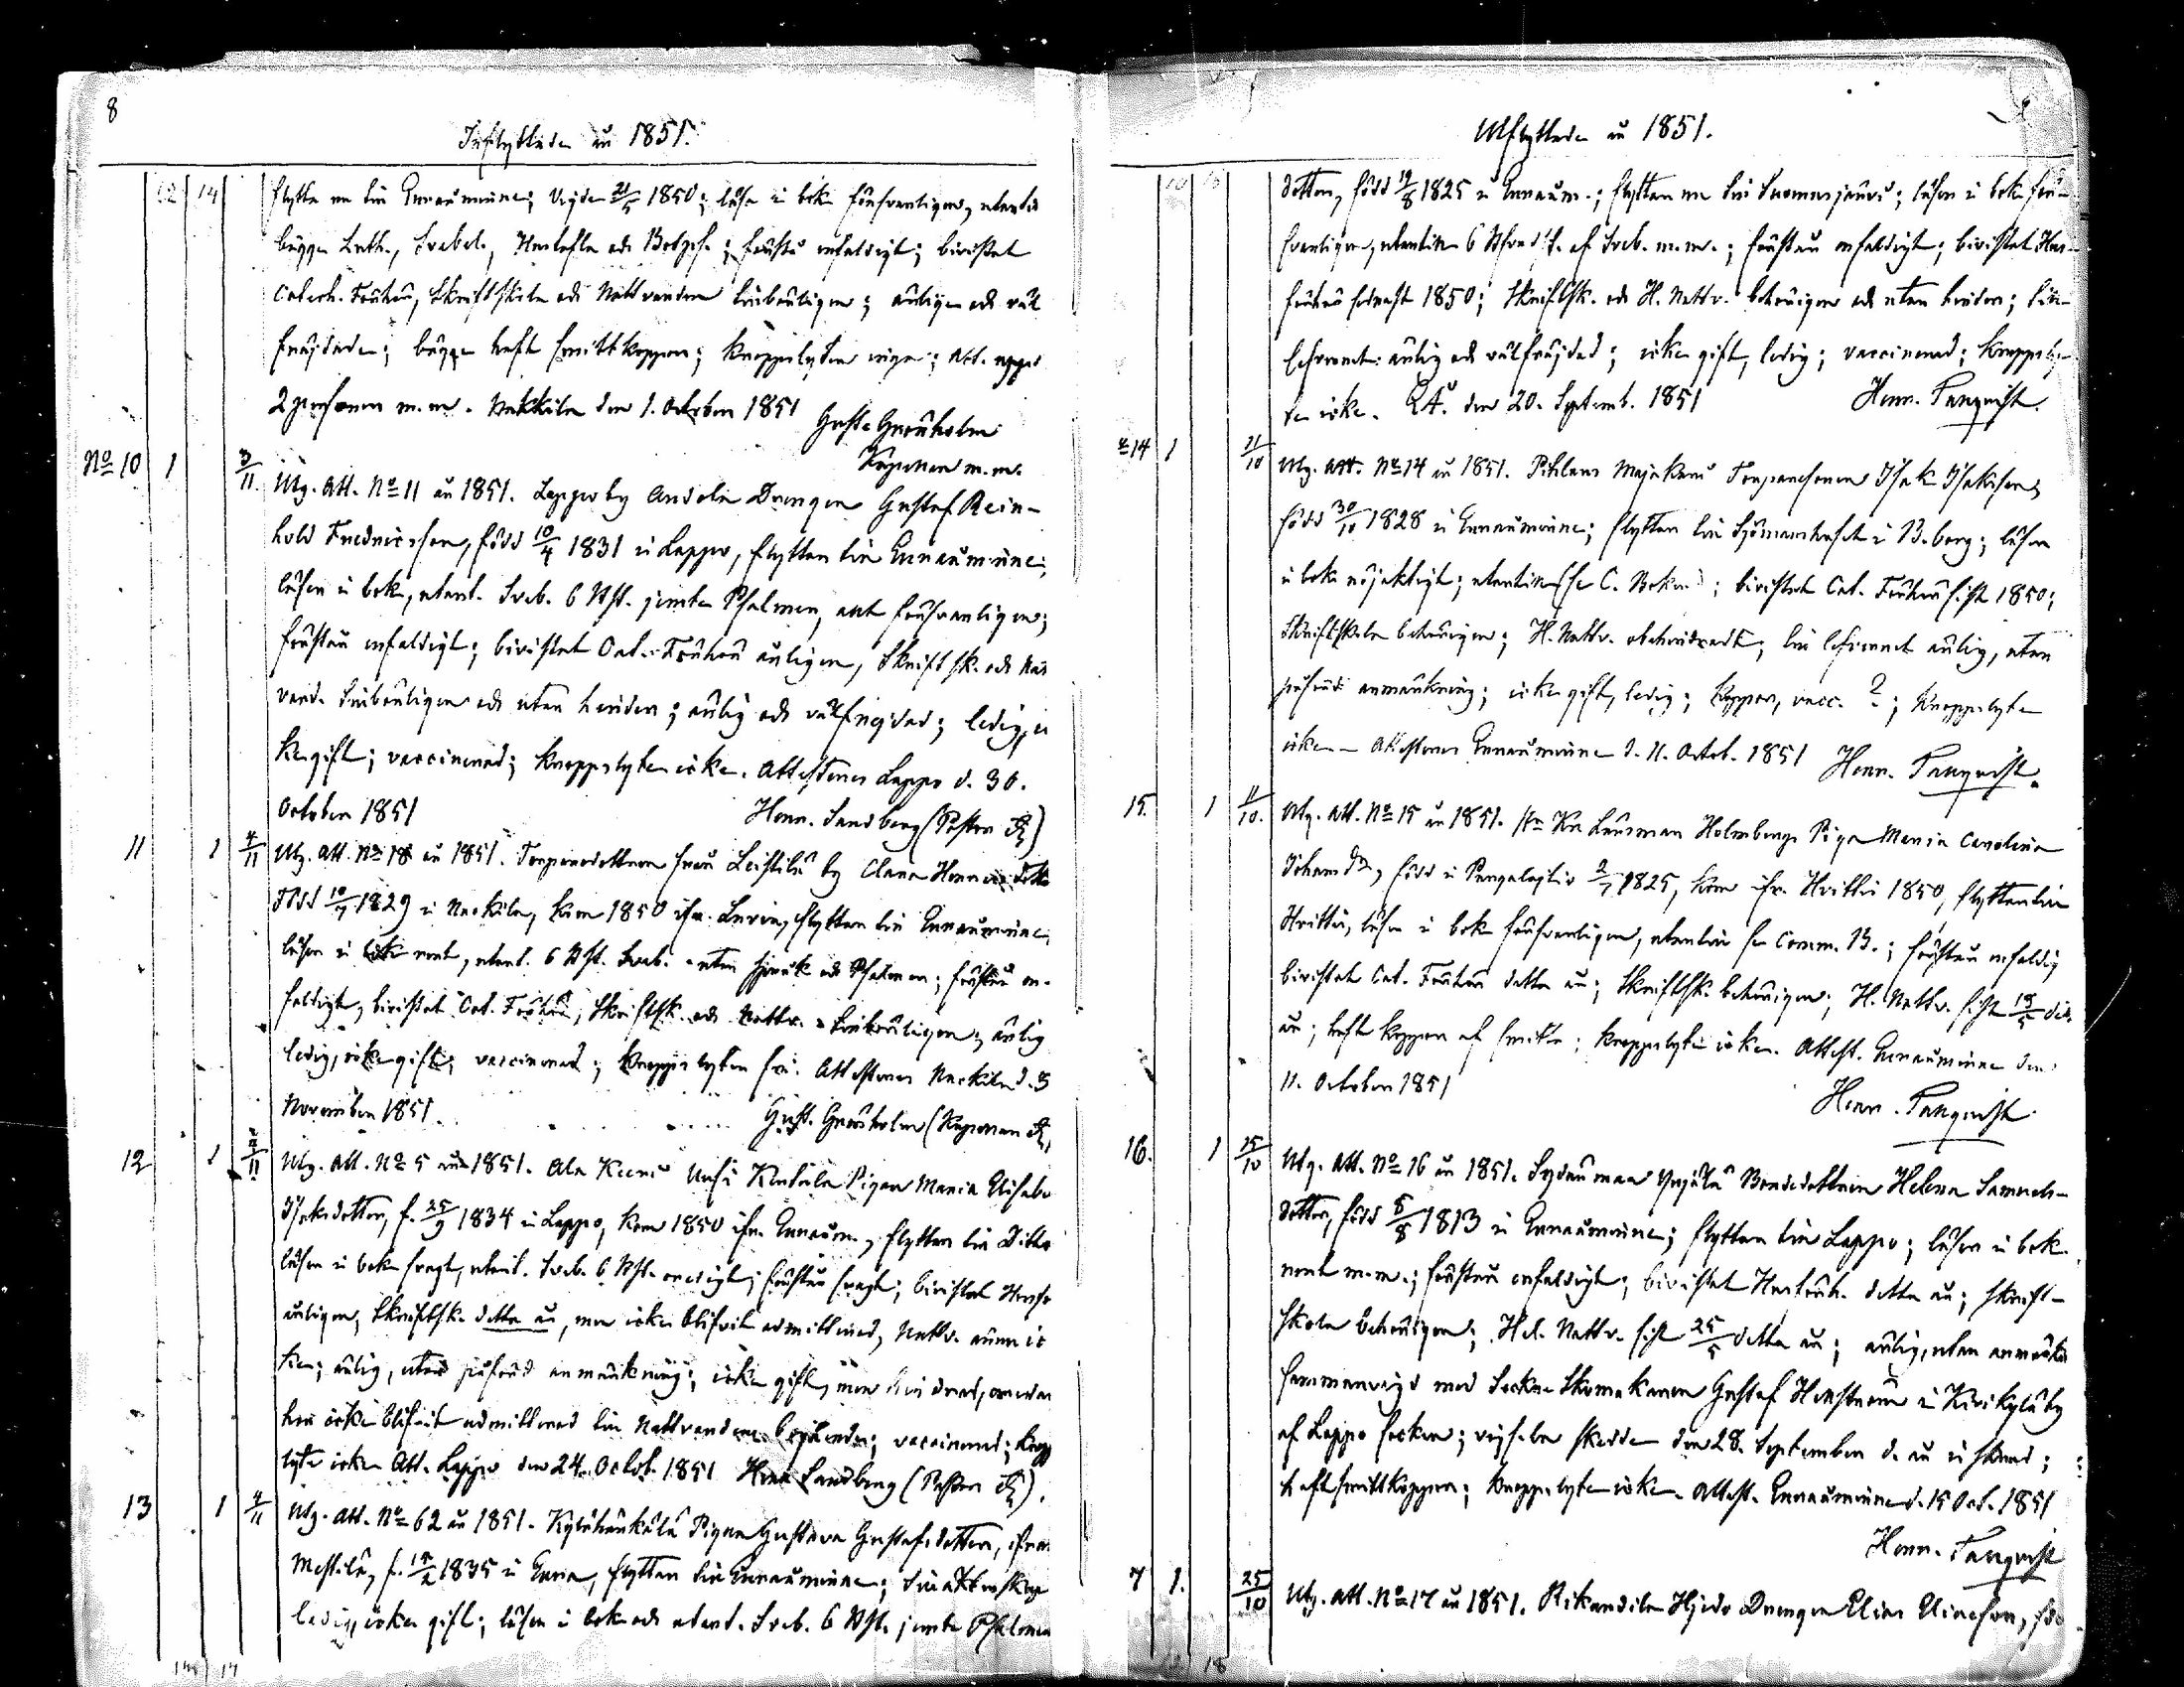 8
Inflyttade år 1851.
12 14
flytta nu till Eurauminne; Vigde 21/5 1850; läsa i bok försvarligen, utantill
begge Luth., Svebel., Hustafla och Botps.; förstå enfaldigt; bevistat
Catech. Förhör, Skriftskola och Nattvarden tillbörligen; ärlige och väl
frejdade; begge haft smittkoppor; kroppslyten inga; Att. uppå
2 personer m.m. Nakkila den 1. October 1851 Gust. Grönholm
Kapellan m.m.
No 10 1 3/11 Utg. Att. No 11 år 1851. Lappo by Andola Drengen Gustaf Rein-
hold Fredricsson, född 10/4 1831 i Lappo, flyttar till Eurauminne;
läser i bok, utant. Sveb. 6 Hst. jemte Psalmer, allt försvarligen;
förstår enfaldigt; bevistat Cat. Förhör ärligen, Skriftsk. och Natt
vard. tillbörligen och utan hinder; ärlig och välfrejdad; ledig, ic
ke gift; vaccinerad; kroppslyte icke. Attesterar Lappo d. 30.
October 1851 Henr. Sandberg (Pastor
11 1 4/11 Utg. Att. No 18 år 1851. Torparedottren från Leistilä by Clara Henricsdotter
Född 10/7 1829 i Nackila, kom 1850 ifr. Luvia, flyttar till Eurauminne,
läser i bok rent, utant. 6 Hst. Sveb. utan språk och Psalmer; förstår en-
faldigt, bevistat Cat. Förhör, Skriftsk. och Nattv. tillbörligen; ärlig
ledig, icke gift; vaccinerad; kroppslyten fri. Attesterar Nackila d. 3
November 1851. Gust. Grönholm (Kapellan
12 1 4/11 Utg. Att. No 5 år 1851. Ala Keeni Unsi Pigan Maria Elisabe
Isaksdotter, f. 25/9 1834 i Lappo, kom 1850 ifr. Euraum., flyttar till Ditto
läser i bok svagt, utant. Sveb. 6 Hst. ; förstår svagt; bevistat Husför
ärligen, Skriftsk. detta år, men icke blifvit admitterad, Nattv. ännu ic
ke; ärlig, utan särskild anmärkning; icke gift, men hindrad, emedan
hon icke blifvit admitterad till Nattvardens begående; vaccinerad; kropp
lyte icke Att. Lappo den 24. Octob. 1851 Henr Sandberg (Pastor
13 1 4/11 Utg. Att. No 62 år 1851. Pigan Gustava Gustafsdotter, ifrån
Mestilä, f. 12/2 1835 i Eura, flyttar till Eurauminne; till äktenskap
ledig, icke gift; läser i bok och utant. Sveb. 6 Hst. jemte Psalmer
14 17
Utflyttade år 1851.
dotter, född 19/8 1825 i Euraum.; flyttar nu till Suomusjärvi; läser i bok för-
svarligen, utantill 6 Hfvudst. af Sveb. m.m.; förstår enfaldigt; bevistat Hus-
förhör sednast 1850; Skriftsk. och H. Nattv. behörigen och utan hinder; till
lefvernet ärlig och välfrejdad; icke gift, ledig; vaccinerad; kroppsly-
te icke. den 20. Septemb. 1851 Henr. Tanqvist.
14 1 11/10 Utg. Att. No 14 år 1851. Pihlaus Majakari Torparesonen Isak Isaksson,
född 30/10 1828 i Eurauminne; flyttar till Sjömanshuset i B.borg; läser
i bok nöjaktigt; utantill se C. Boken; bevistat Cat. Förhör sist 1850;
Skriftskolan behörigen; H. Nattv. obehindradt; till lefvernet ärlig, utan
särskild anmärkning; icke gift, ledig; koppor, vacc. ?; kroppslyte
icke - Attesterar Eurauminne d. 11. Octob. 1851 Henr. Tanqvist.
15. 1 11/10. Utg. Att. No 15 år 1851. Kr. Länsman Holmbergs Piga Maria Carolina
Johansdr, född i Pungalaitio 2/7 1825, kom ifr. Hvittis 1850, flyttar till
Hvittis, läser i bok försvarligen, utantill se Comm. B.; förstår enfaldig
bevistat Cat. Förhör detta år; Skriftsk. behörigen; H. Nattv. sist 18/5 det.
år; haft koppor af smitta; kroppslyte icke. Attest. Eurauminne den
11. October 1851
Henr. Tanqvist
16. 1 15/10 Utg. Att. No 16 år 1851. Sydänmaa Yrjälä Bondedottren Helena Samuels-
dotter, född 8/8 1813 i Eurauminne; flyttar till Lappo; läser i bok
rent m.m.; förstår enfaldigt; bevistat Husförh. detta år; skrift-
skola behörigen; Hel. Nattv. sist 25/5 detta år; ärlig, utan anmärkn
sammanvigd med Sockne Skomakaren Gustaf Hellström i Kirikylä by
af Lappo socken; vigseln skedde den 28. September d. år i stånd;
haft smittkoppor; kroppslyte icke. Attest. Eurauminne d. 15 Oct. 1851
Henr. Tanqvist
7 1. 25/10 Utg. Att. No 17 år 1851. Rikandila Drengen Elias Eliasson, föd
18